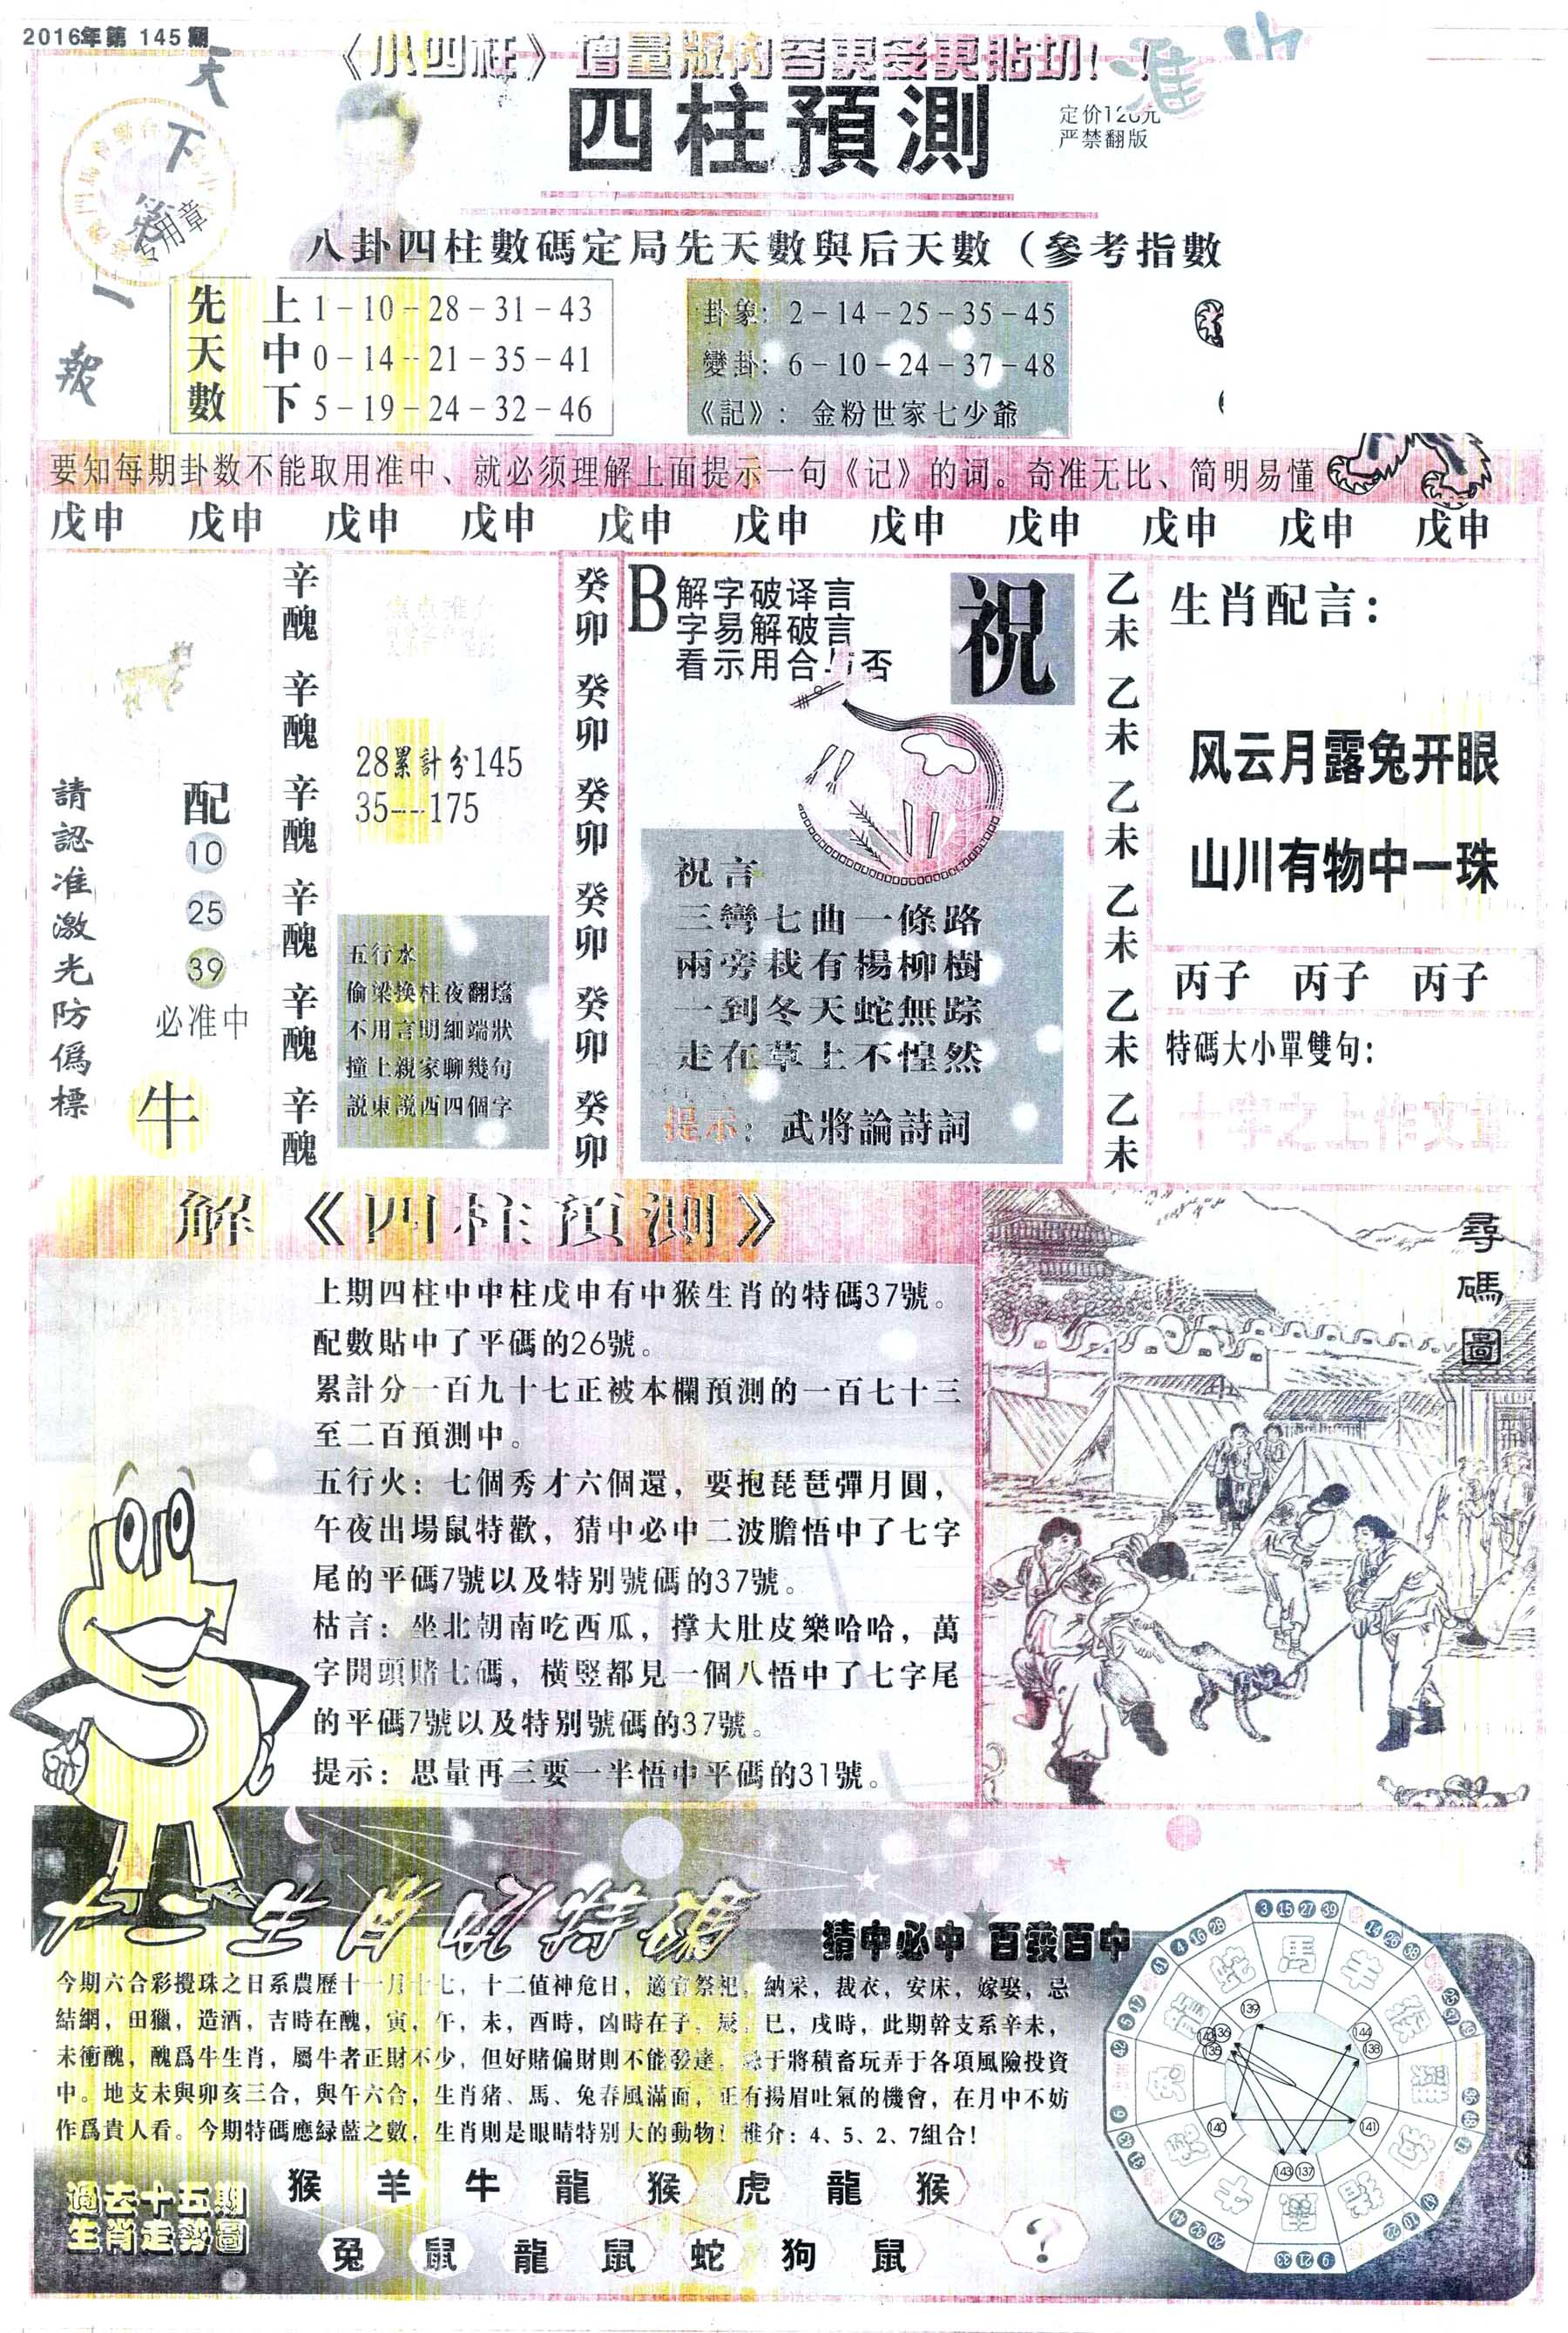 2016年第 145 期
《小四柱》增量版内容更受更貼切！！
准
天下第一報
四柱預測
定价120元
严禁翻版
专用章
八卦四柱數碼定局先天數與后天數（參考指數
先天數
上 1－10－28－31－43
中 0－14－21－35－41
下 5－19－24－32－46
卦象：2－14－25－35－45
變卦：6－10－24－37－48
《記》：金粉世家七少爺
要知每期卦数不能取用准中、就必须理解上面提示一句《记》的词。奇准无比、简明易懂
戊申 戊申 戊申 戊申 戊申 戊申 戊申 戊申 戊申 戊申 戊申
請認准激光防僞標
配
10
25
39
必准中
牛
辛醜 辛醜 辛醜 辛醜 辛醜 辛醜
28累計分145
35---175
五行水
偷梁换柱夜翻墻
不用言明細端狀
撞上親家聊幾句
説東説西四個字
癸卯 癸卯 癸卯 癸卯 癸卯 癸卯
B
解字破译言
字易解破言
看示用合与否
祝
祝言
三彎七曲一條路
兩旁栽有楊柳樹
一到冬天蛇無踪
走在草上不惶然
提示：武將論詩詞
乙未 乙未 乙未 乙未 乙未 乙未
生肖配言：
风云月露兔开眼
山川有物中一珠
丙子 丙子 丙子
特碼大小單雙句：
十字之上作文章
解《四柱預測》
上期四柱中中柱戊申有中猴生肖的特碼37號。
配數貼中了平碼的26號。
累計分一百九十七正被本欄預測的一百七十三
至二百預測中。
五行火：七個秀才六個還，要抱琵琶彈月圓，
午夜出場鼠特歡，猜中必中二波膽悟中了七字
尾的平碼7號以及特别號碼的37號。
枯言：坐北朝南吃西瓜，撑大肚皮樂哈哈，萬
字開頭賭七碼，横竪都見一個八悟中了七字尾
的平碼7號以及特别號碼的37號。
提示：思量再三要一半悟中平碼的31號。
尋碼圖
猜中必中 百發百中
今期六合彩攪珠之日系農歷十一月十七，十二值神危日，適宜祭祀，納采，裁衣，安床，嫁娶，忌
結網，田獵，造酒，吉時在醜，寅，午，未，酉時，凶時在子，辰，巳，戌時，此期幹支系辛未，
未衝醜，醜爲牛生肖，屬牛者正財不少，但好賭偏財則不能發達，忌于將積畜玩弄于各項風險投資
中。地支未與卯亥三合，與午六合，生肖猪、馬、兔春風滿面，正有揚眉吐氣的機會，在月中不妨
作爲貴人看。今期特碼應緑藍之數，生肖則是眼睛特别大的動物！推介：4、5、2、7組合！
過去十五期
生肖走勢圖
猴 羊 牛 龍 猴 虎 龍 猴
兔 鼠 龍 鼠 蛇 狗 鼠 ？
3 15 27 39
4 16 28
14 26 38
馬 羊 猴 蛇
139
144
138
136
140
141
143 137
9 21 33